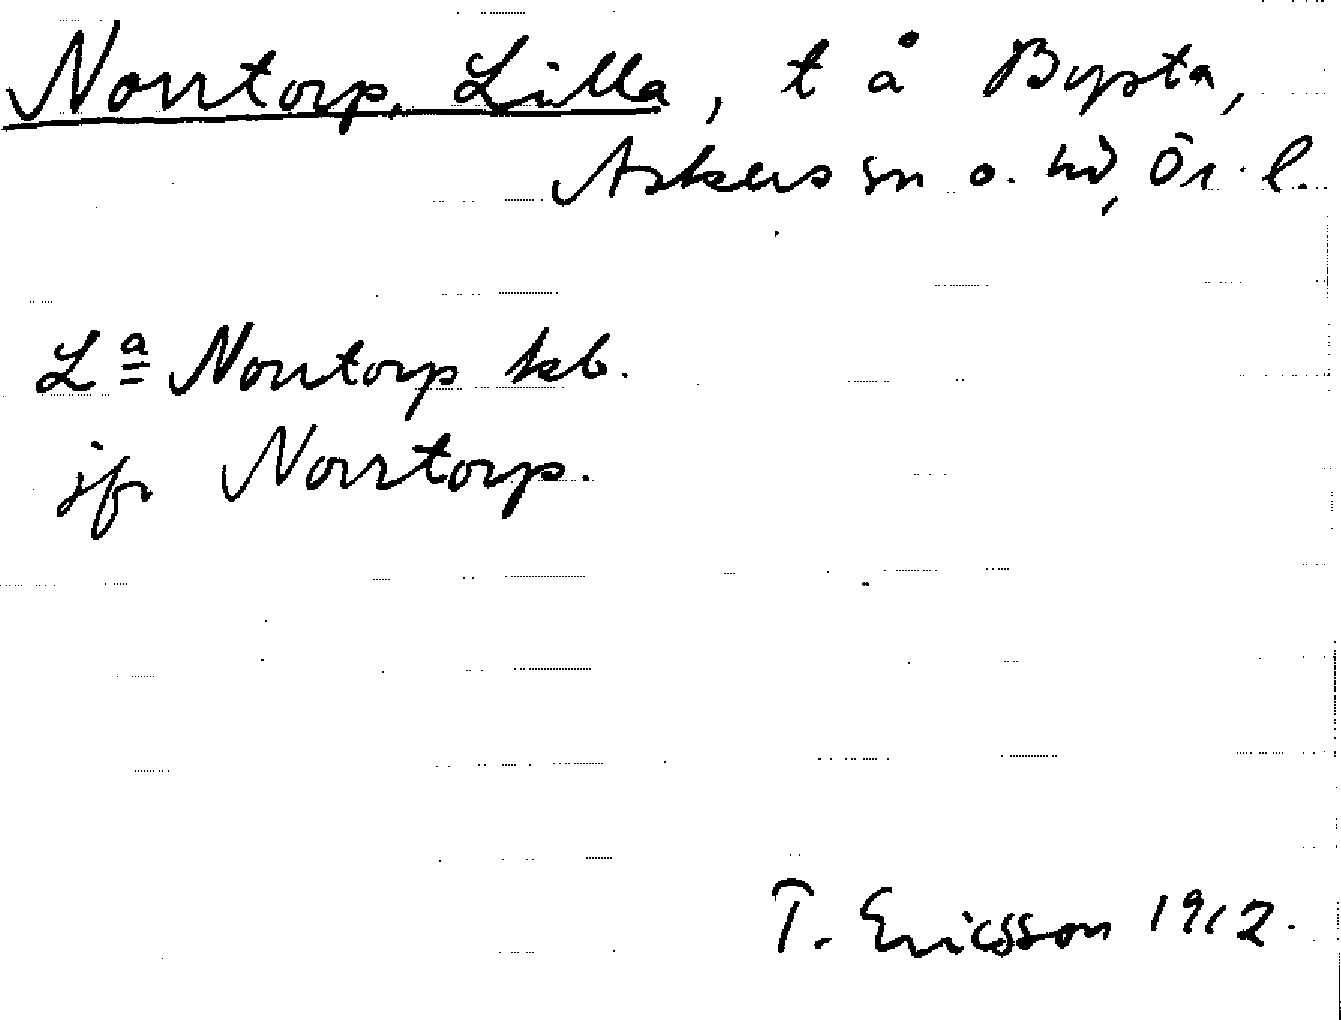 Norrtorp, Lilla, t å Bysta,
Askers sn o. hd, Ör. l.
La Norrtorp kb.
jfr Norrtorp.
T. Ericsson 1912.